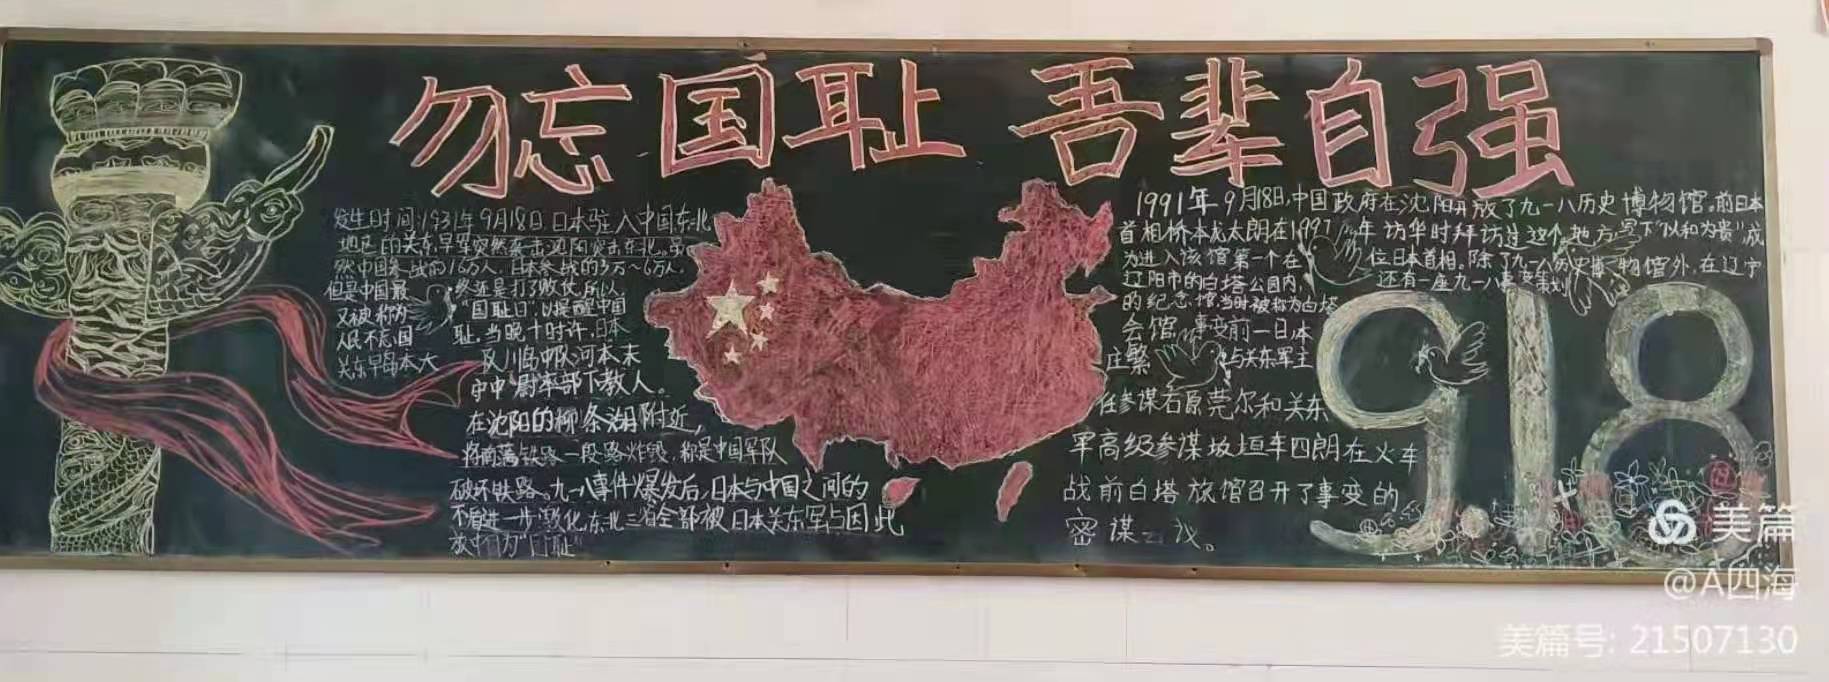 勿忘国耻 吾辈自强
发生时间:1931年9月18日,日本驻入中国东北
地区的关东军突然袭击沈阳突击东北。虽
然中国参战的16万人,日本参战的3万~6万人,
但是中国最 终还是打了败仗,所以
又被称为 "国耻日",以提醒中国
人民不忘国 耻,当晚十时许,日本
关东军岛本大 及川岛中队河本末
守中尉率部下教人。
在沈阳的柳条湖附近,
将南满铁路一段路炸毁,称是中国军队
破坏铁路。九一八事件爆发后,日本与中国之间的
一步激化,东北三省全部被日本关东军占因此
1991年9月18日,中国政府在沈阳开放了九一八历史博物馆。前日本
首相桥本龙太朗在1997年访华时拜访过这个地方,写下"以和为贵"成
为进入该馆第一个在 位日本首相。除了九一八历史博物馆外,在辽宁
辽阳市的白塔公园内, 还有一座九一八事变策划
的纪念馆当时被称为白塔
会馆,事变前一日本
庄繁 与关东军主
任参谋石原莞尔和关东
军高级参谋坂垣车四朗在火车
战前白塔旅馆召开了事变的
密谋会议。
9.18
美篇
@A四海
美篇号: 21507130